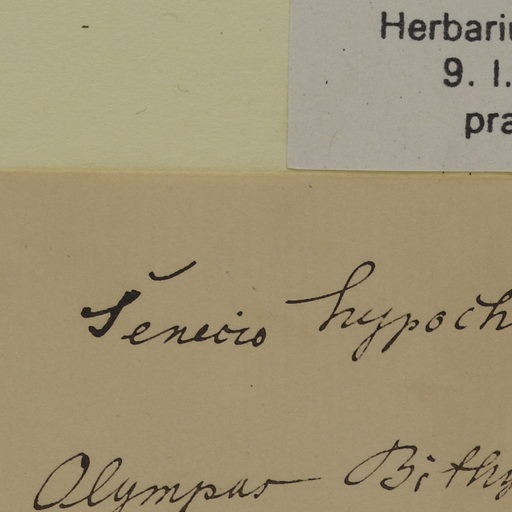 Herbariu
9. I.
pra
Senecio hypoch
Olympus Bithy